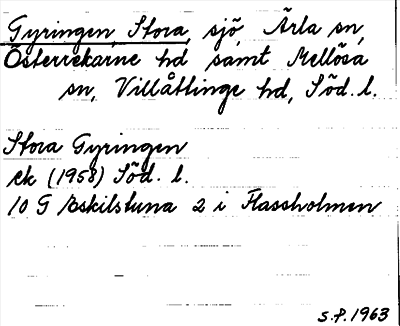 Gyringen, Stora, sjö, Ärla sn,
Österrekarne hd samt Mellösa
sn, Villåttinge hd, Söd. l.
Stora Gyringen
ek (1958) Söd. l.
10 G Eskilstuna 2 i Flassholmen
S.P. 1963